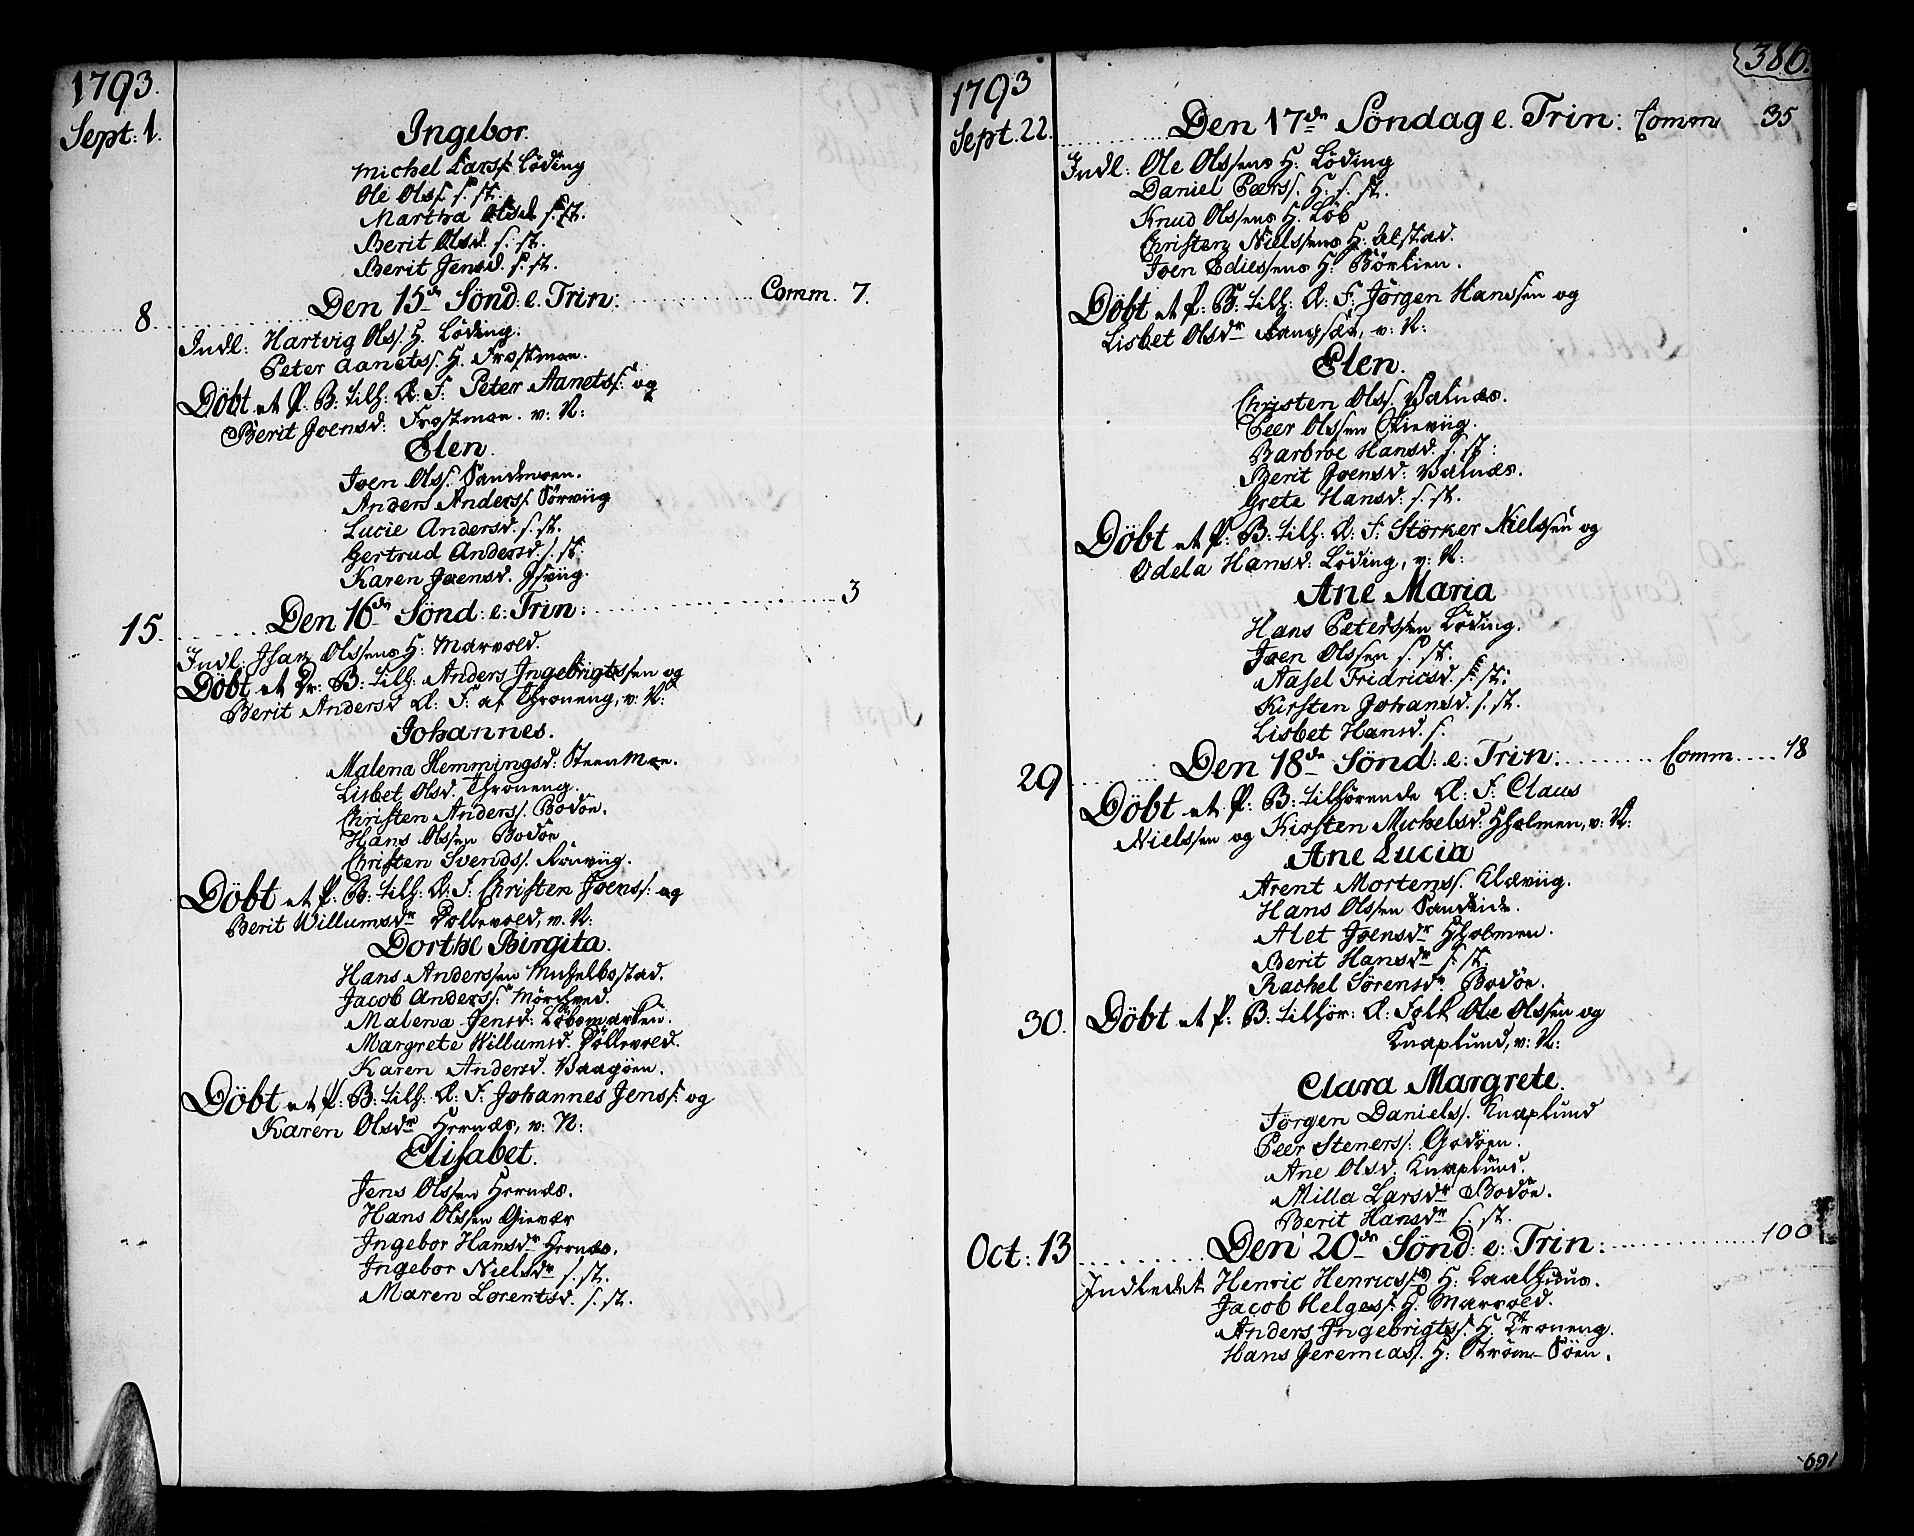 1793.
Sept: 1.
Ingebor.
Michel Larss: Löding
Ole Olss. s. st.
Martha Olsd. s. st.
Berit Olsd. s. st.
Berit Jensd. s. st.
8. Den 15de Sönd. e. Trin: Comm. 7.
Indl: Hartvig Olss. H. Löding.
Peter Aanetss. H. Frostmoe.
Döbt et P. B: tilh: Æ: F: Peter Aanetss: og
Berit Joensd: Frostmoe. v: N:
Elen.
Joen Olss. Sandmoen.
Anders Anderss. Sörviig
Lucie Andersd. s. st.
Gertrud Andersd. s. st:
Karen Joensd. Isviig.
15. Den 16de Sönd: e: Trin: 3
Indl: Isak Olssens H: Marvold.
Döbt et Dr: B: tilh: Anders Ingebrigtssen og
Berit Andersd Æ: F: af Throneng, v: N:
Johannes.
Malena Hemmingsd: Steen Moe.
Lisbet Olsd. Throneng.
Christen Anderss. Bodöe.
Hans Olssen Bodöe
Christen Svendss. Rönviig.
Döbt et P: B: tilh: Æ: F: Christen Joenss: og
Berit Willumsdr Pollevold, v. N:
Dorthe Birgita.
Hans Anderssen Michelbostad.
Jacob Anderss: Mörchved.
Malena Jensd: Löbsmarken.
Margrete Willumsd. Pollevold.
Karen Andersd. Vaagöen.
Döbt et P: B: tilh: Æ. F. Johannes Jenss: og
Karen Olsdr Hernæs, v: N:
Elisabet.
Jens Olssen Hernæs.
Hans Olssen Gievær
Ingebor Hansdr Hernæs.
Ingebor Nielsdr s. st.
Maren Lorentsd. s. st.
386.
1793
Sept. 22. Den 17de Söndag e. Trin: Comm 35
Indl: Ole Olssens H. Löding
Daniel Pærss. H. s. st.
Knud Olssens H. Löb
Christen Nielssens H: Alstad.
Joen Ediessens H: Börlien.
Döbt et P: B. tilh: Æ: F: Jörgen Hanssen og
Lisbet Olsdr Langsæt, v: N:
Elen.
Christen Olss. Valnæs.
Peer Olssen Skieviig.
Barbroe Hansd. s. st:
Berit Joensd: Valnæs.
Grete Hansd. s. st.
Döbt et P: B: tilh: Æ: F: Störker Nielssen og
Odela Hansd: Löding, v: N:
Ane Maria
Hans Peterssen Löding.
Joen Olssen s. st.
Aasel Fridricsd. s. st:
Kirsten Johansd. s. st.
Lisbet Hansd. s.
29 Den 18de Sönd: e: Trin: Comm. 18
Döbt et P: B: tilhörende Æ: F: Claus
Nielssen og Kirsten Michelsd: Hholmen, v: N:
Ane Lucia
Arent Mortenss. Klæviig.
Hans Olssen Sandeide.
Alet Joensdr Hholmen.
Berit Hansdr s. st.
Rachel Sörensdr Bodöe.
30. Döbt et P: B: tilhör: Æ: Folk Ole Olssen og
Knaplund, v: N:
Clara Margrete.
Jörgen Danielss. Knaplund
Peer Steners: Godöen.
Ane Olsd: Knaplund.
Milla Larsdr Bodöe.
Berit Hansdr s. st.
Oct: 13 Den 20de Sönd: e: Trin: 100
Indledet Henric Henricss: H: Kaalhuus.
Jacob Helgess: H. Marvold.
Anders Ingebrigtss. H. Troneng.
Hans Jeremiass. H: Ström-Söen.
691